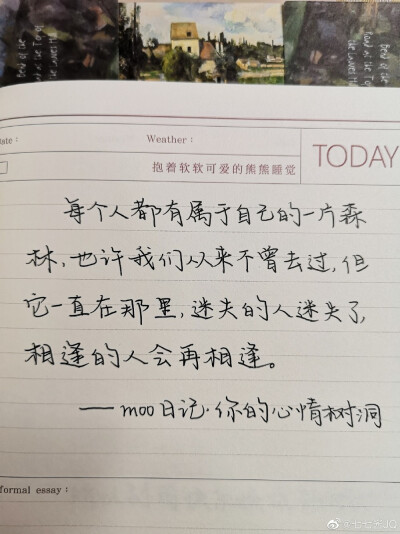 Date:
Weather:
抱着软软可爱的熊熊睡觉
TODAY
每个人都有属于自己的一片森
林,也许我们从来不曾去过,但
它一直在那里,迷失的人迷失了,
相逢的人会再相逢。
——moo日记·你的心情树洞
formal essay: